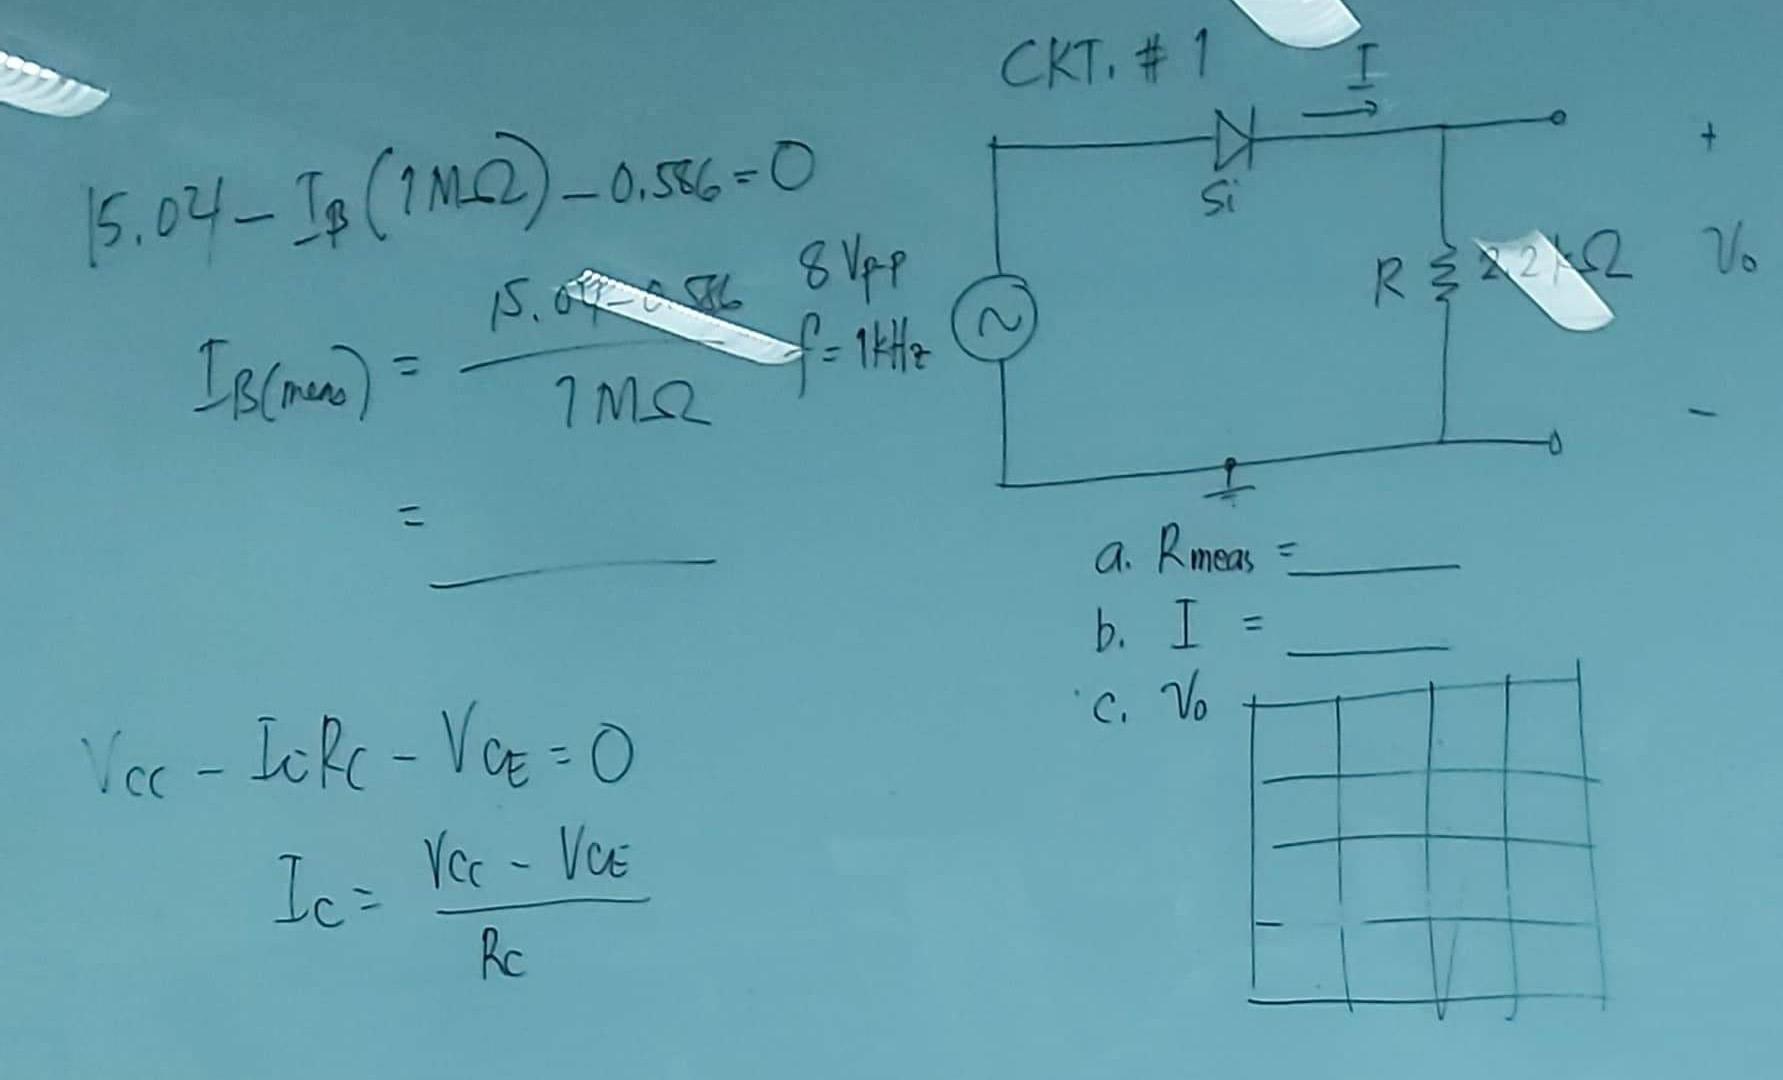 15.04 - IB (1MΩ) - 0.586 = 0
IB(meas) = 15.04 - 0.586
1MΩ
=
VCC - ICRC - VCE = 0
IC = VCC - VCE
RC
CKT. # 1
I
Si
8 Vpp
f = 1kHz
R 2.2kΩ
+
Vo
-
a. Rmeas =
b. I =
c. Vo